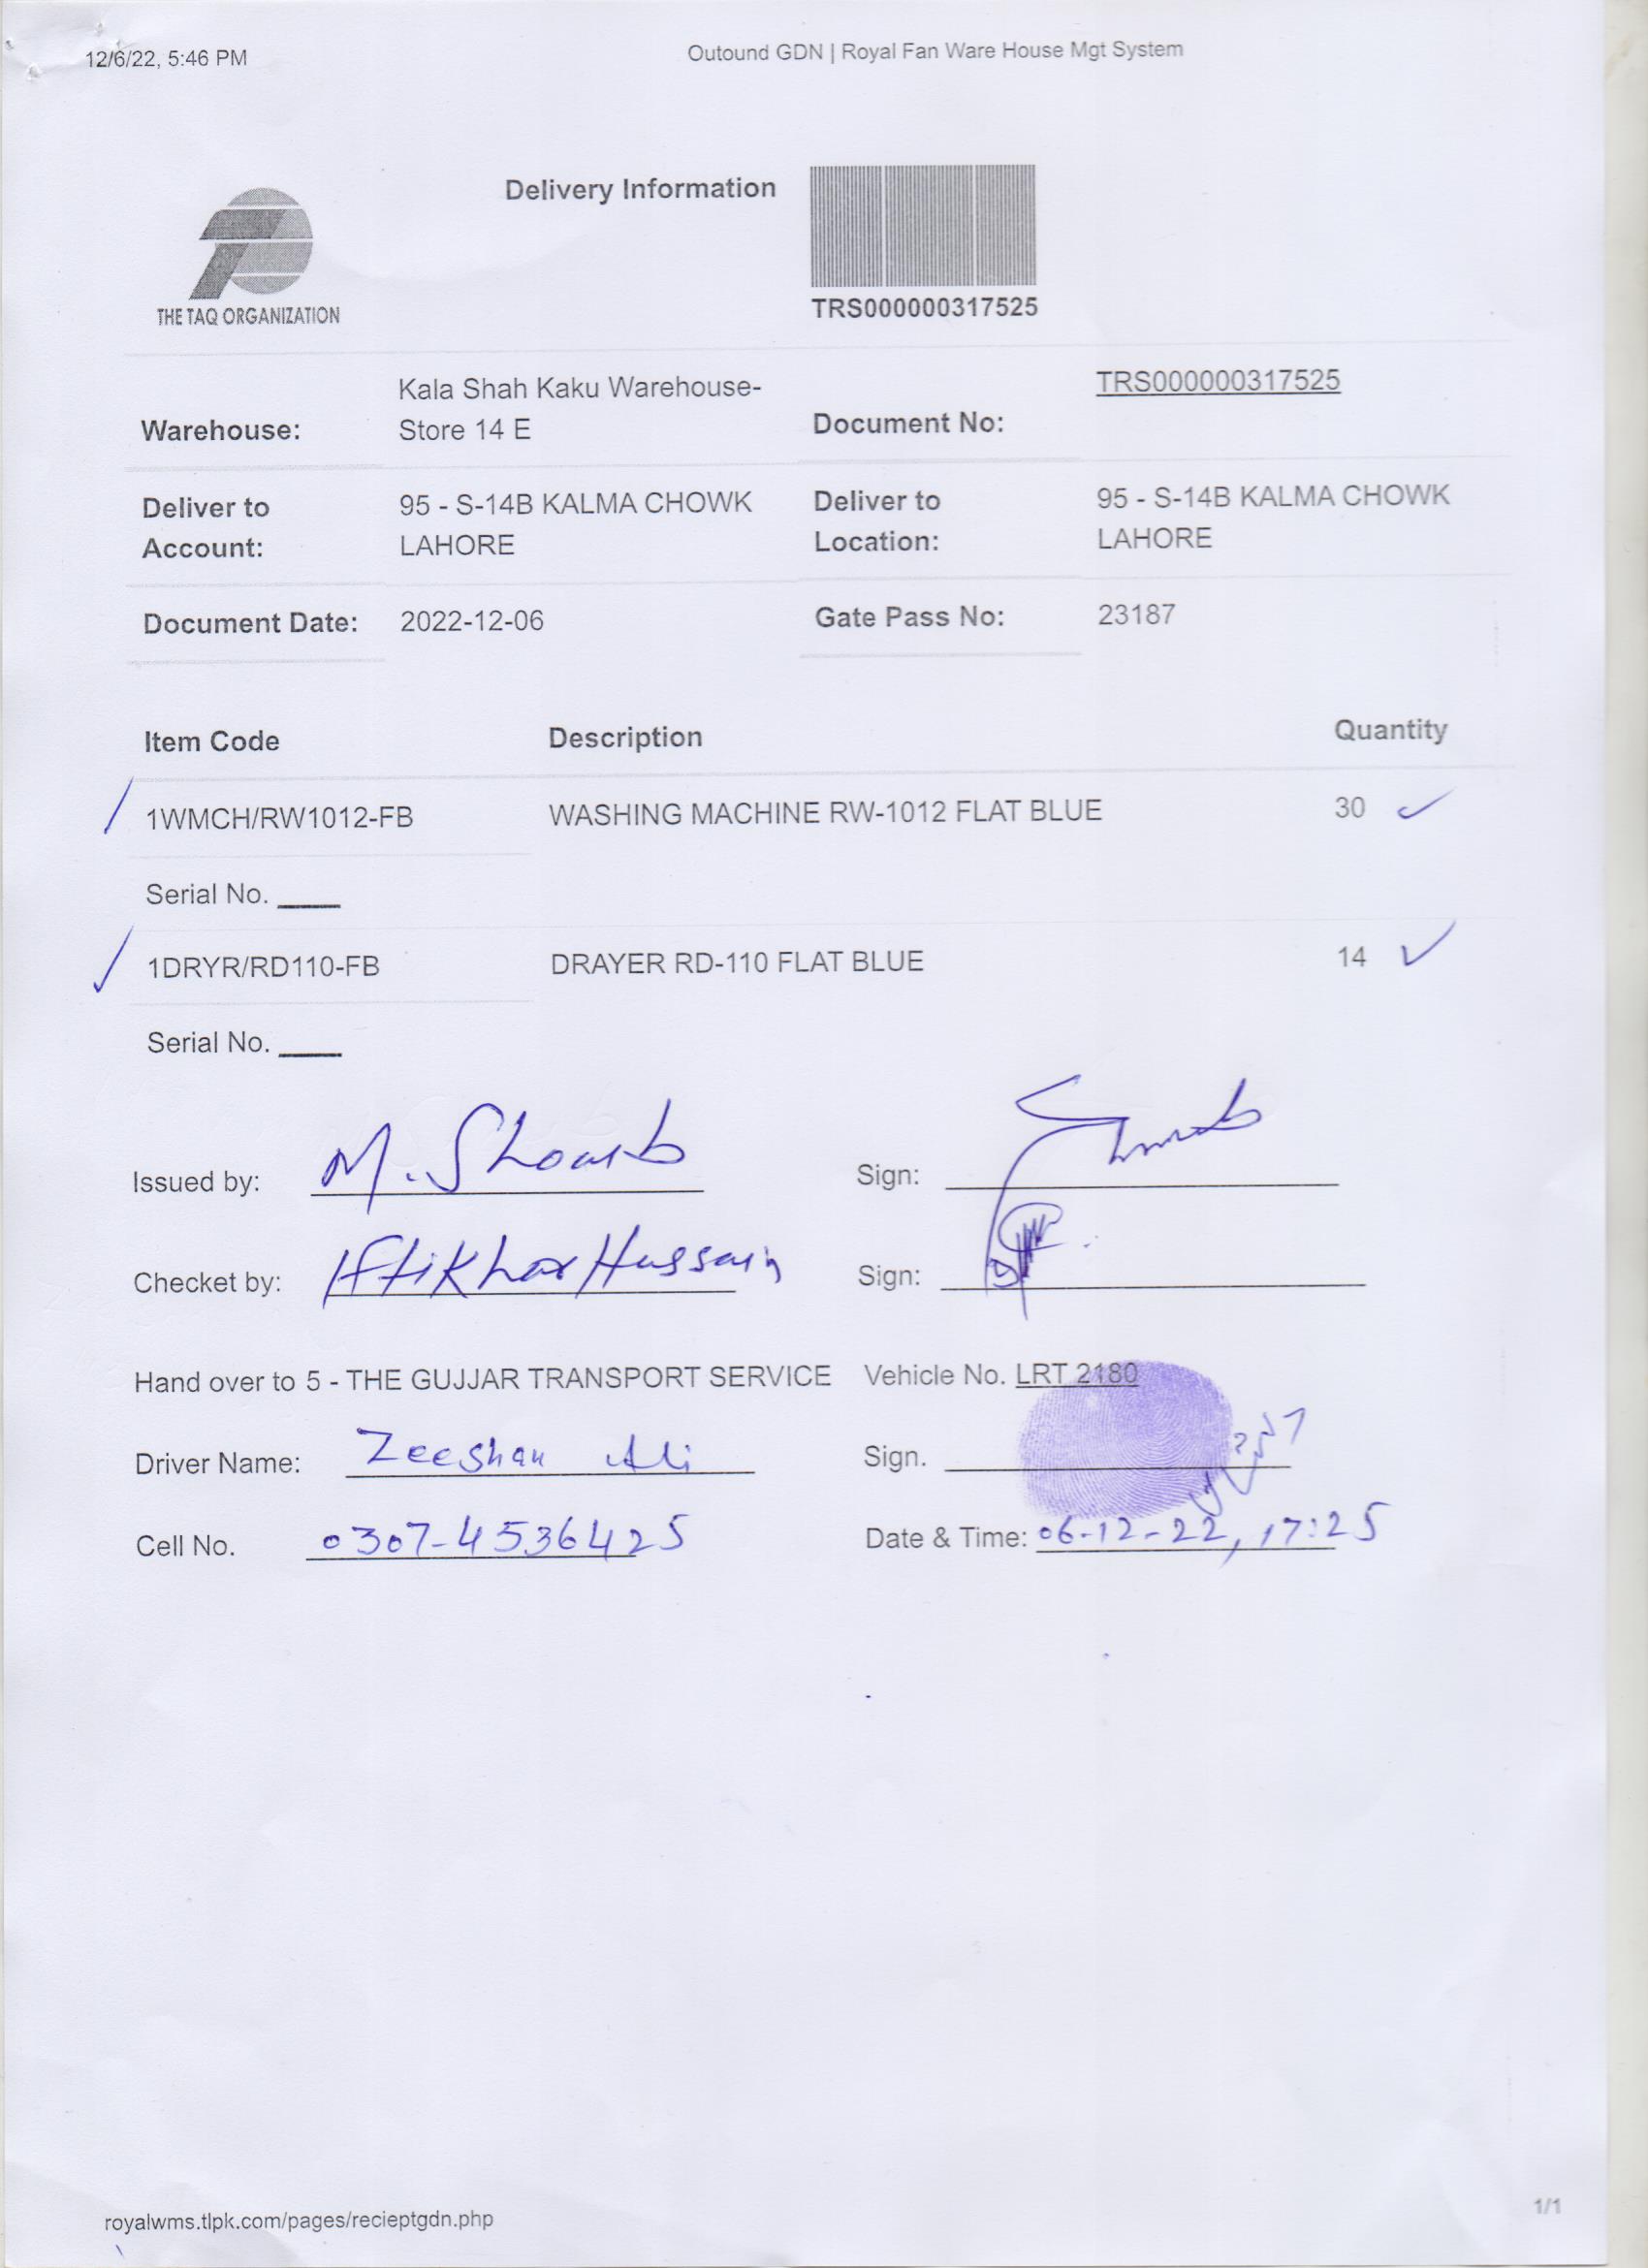 12/6/22, 5:46 PM Outound GDN | Royal Fan Ware House Mgt System
Delivery Information
THE TAQ ORGANIZATION
TRS000000317525
Warehouse: Kala Shah Kaku Warehouse-
Store 14 E
Document No: TRS000000317525
Deliver to Account: 95 - S-14B KALMA CHOWK
LAHORE
Deliver to Location: 95 - S-14B KALMA CHOWK
LAHORE
Document Date: 2022-12-06 Gate Pass No: 23187
Item Code Description Quantity
1WMCH/RW1012-FB WASHING MACHINE RW-1012 FLAT BLUE 30
Serial No.
1DRYR/RD110-FB DRAYER RD-110 FLAT BLUE 14
Serial No.
Issued by: M. Shoaib Sign:
Checket by: Iftikhar Hussain Sign:
Hand over to 5 - THE GUJJAR TRANSPORT SERVICE Vehicle No. LRT 2180
Driver Name: Zeeshan Ali Sign.
Cell No. 0307-4536425 Date & Time: 06-12-22, 17:25
royalwms.tlpk.com/pages/recieptgdn.php 1/1